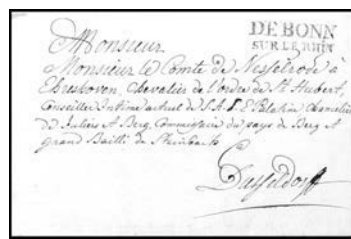 DE BONN
SUR LE RHIN
Monsieur
Monsieur le Comte de Nesselrode à
Ehreshoven, Chevalier de l'ordre de St Hubert,
Conseiller Intime actuel de S. A. S. E. Palatin Chancelier
de Juliers et Berg, Commissaire du pays de Berg et
grand Bailli de Steinbach
Dusseldorff